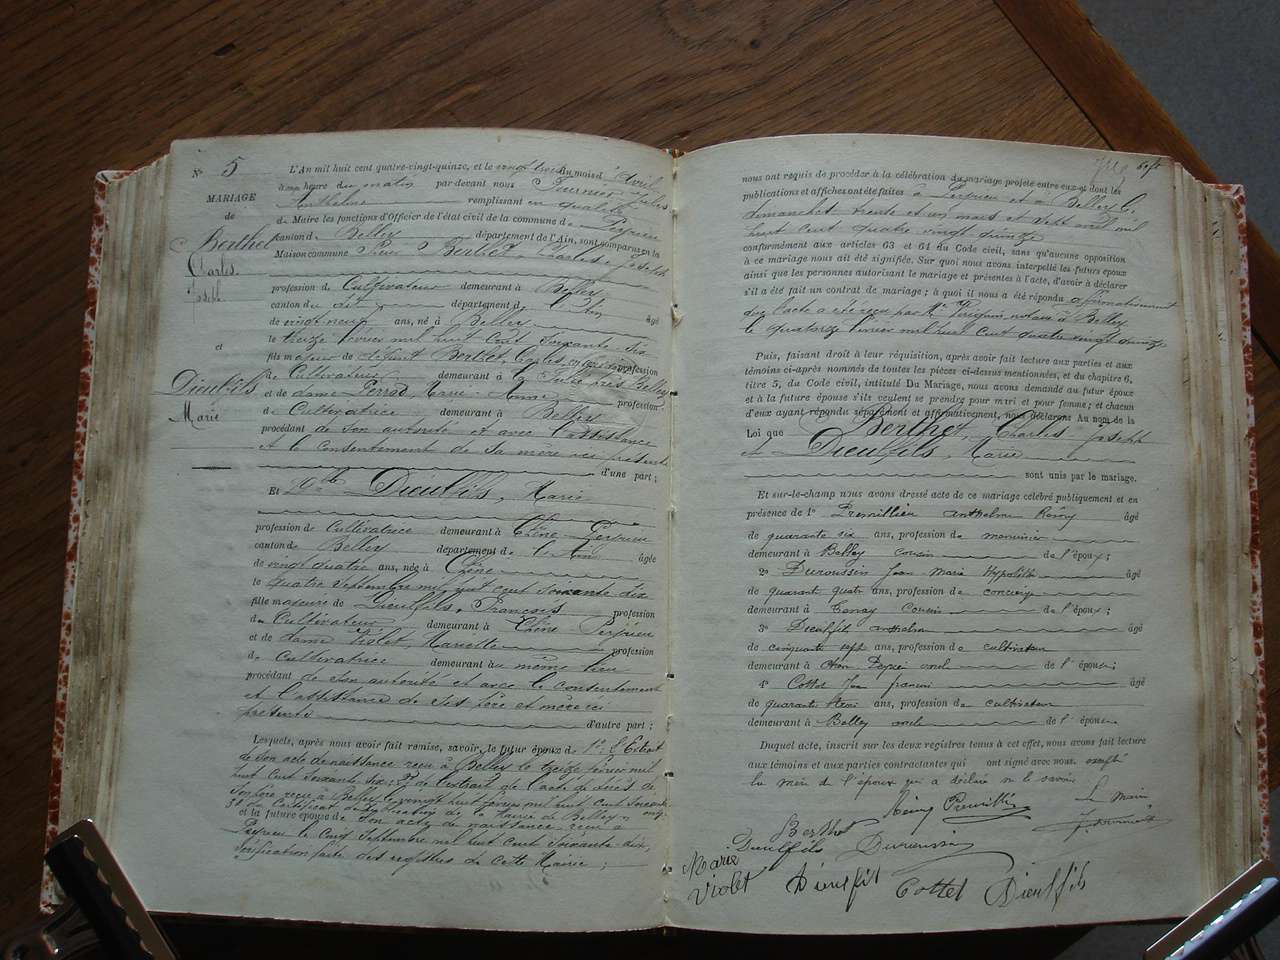 N° 5
MARIAGE
de
Berthet
Charles
Joseph
et
Dieufils
Marie
L'An mil huit cent quatre-vingt-quinze, et le vingt trois du mois d'Avril
à une heure du matin par-devant nous Fournier, Jules
Anthelme remplissant en qualité
de Maire les fonctions d'Officier de l'état civil de la commune de Peyrieu
canton de Belley département de l'Ain, sont comparus en la
Maison commune Sieur Berthet, Charles, Joseph
profession de Cultivateur demeurant à Belley
canton du dit département de l'Ain âgé
de vingt neuf ans, né à Belley
le treize février mil huit cent soixante six
fils majeur de défunt Berthet, Charles, en son vivant profession
de Cultivateur demeurant à près Belley
et de dame Perrod, Marie-Anne profession
de Cultivatrice demeurant à Belley
procédant de son autorité et avec l'assistance
et le consentement de sa mère ici présente
d'une part ;
Et Dlle Dieufils, Marie
profession de Cultivatrice demeurant à Chêne Peyrieu
canton de Belley département de l'Ain âgée
de vingt quatre ans, née à Chêne
le quatre septembre mil huit cent soixante dix
fille majeure de Dieufils, François profession
de Cultivateur demeurant à Chêne Peyrieu
et de dame Violet, Mariette profession
de Cultivatrice demeurant au même lieu
procédant de son autorité et avec le consentement
et l'assistance de ses père et mère ici
présents d'autre part ;
Lesquels, après nous avoir fait remise, savoir, le futur époux de 1° l'Extrait
de son acte de naissance reçu à Belley le treize février mil
huit cent soixante six; 2° de l'extrait de l'acte de décès de
son père reçu à Belley le vingt huit mil huit cent soixante onze
3° du Certificat de publication de la Mairie de Belley
et la future épouse de son acte de naissance reçu à
Peyrieu le cinq Septembre mil huit cent soixante dix,
vérification faite des registres de cette Mairie ;
nous ont requis de procéder à la célébration du mariage projeté entre eux et dont les
publications et affiches ont été faites à Peyrieu et à Belley les
dimanches trente et un mars et sept avril mil
huit cent quatre vingt quinze
conformément aux articles 63 et 64 du Code civil, sans qu'aucune opposition
à ce mariage nous ait été signifiée. Sur quoi nous avons interpellé les futurs époux
ainsi que les personnes autorisant le mariage et présentes à l'acte, d'avoir à déclarer
s'il a été fait un contrat de mariage ; à quoi il nous a été répondu affirmativement
que l'acte a été reçu par Me notaire à Belley
le quatorze février mil huit cent quatre vingt quinze
Puis, faisant droit à leur réquisition, après avoir fait lecture aux parties et aux
témoins ci-après nommés de toutes les pièces ci-dessus mentionnées, et du chapitre 6,
titre 5, du Code civil, intitulé Du Mariage, nous avons demandé au futur époux
et à la future épouse s'ils veulent se prendre pour mari et pour femme ; et chacun
d'eux ayant répondu séparément et affirmativement, nous déclarons Au nom de la
Loi que Berthet, Charles-Joseph
et Dieufils, Marie
sont unis par le mariage.
Et sur-le-champ nous avons dressé acte de ce mariage célébré publiquement et en
présence de 1° Premillieu anthelme Rémy âgé
de quarante six ans, profession de menuisier
demeurant à Belley cousin de l'époux ;
2° Duroussin Jean Marie Hypolitte âgé
de quarante quatre ans, profession de concierge
demeurant à Tenay Cousin de l'époux ;
3° Dieuffit anthelme âgé
de cinquante sept ans, profession de cultivateur
demeurant à oncle de l'épouse ;
4° Cottet Jean françois âgé
de quarante ans, profession de cultivateur
demeurant à Belley oncle de l'épouse
Duquel acte, inscrit sur les deux registres tenus à cet effet, nous avons fait lecture
aux témoins et aux parties contractantes qui ont signé avec nous. excepté
la mère de l'époux qui a déclaré ne le savoir
Rémy Premillieu
Le Maire
Berthet
J. Fournier
Dieufils
Duroussin
Marie
Violet
Dieuffit
Cottet
Dieuffit